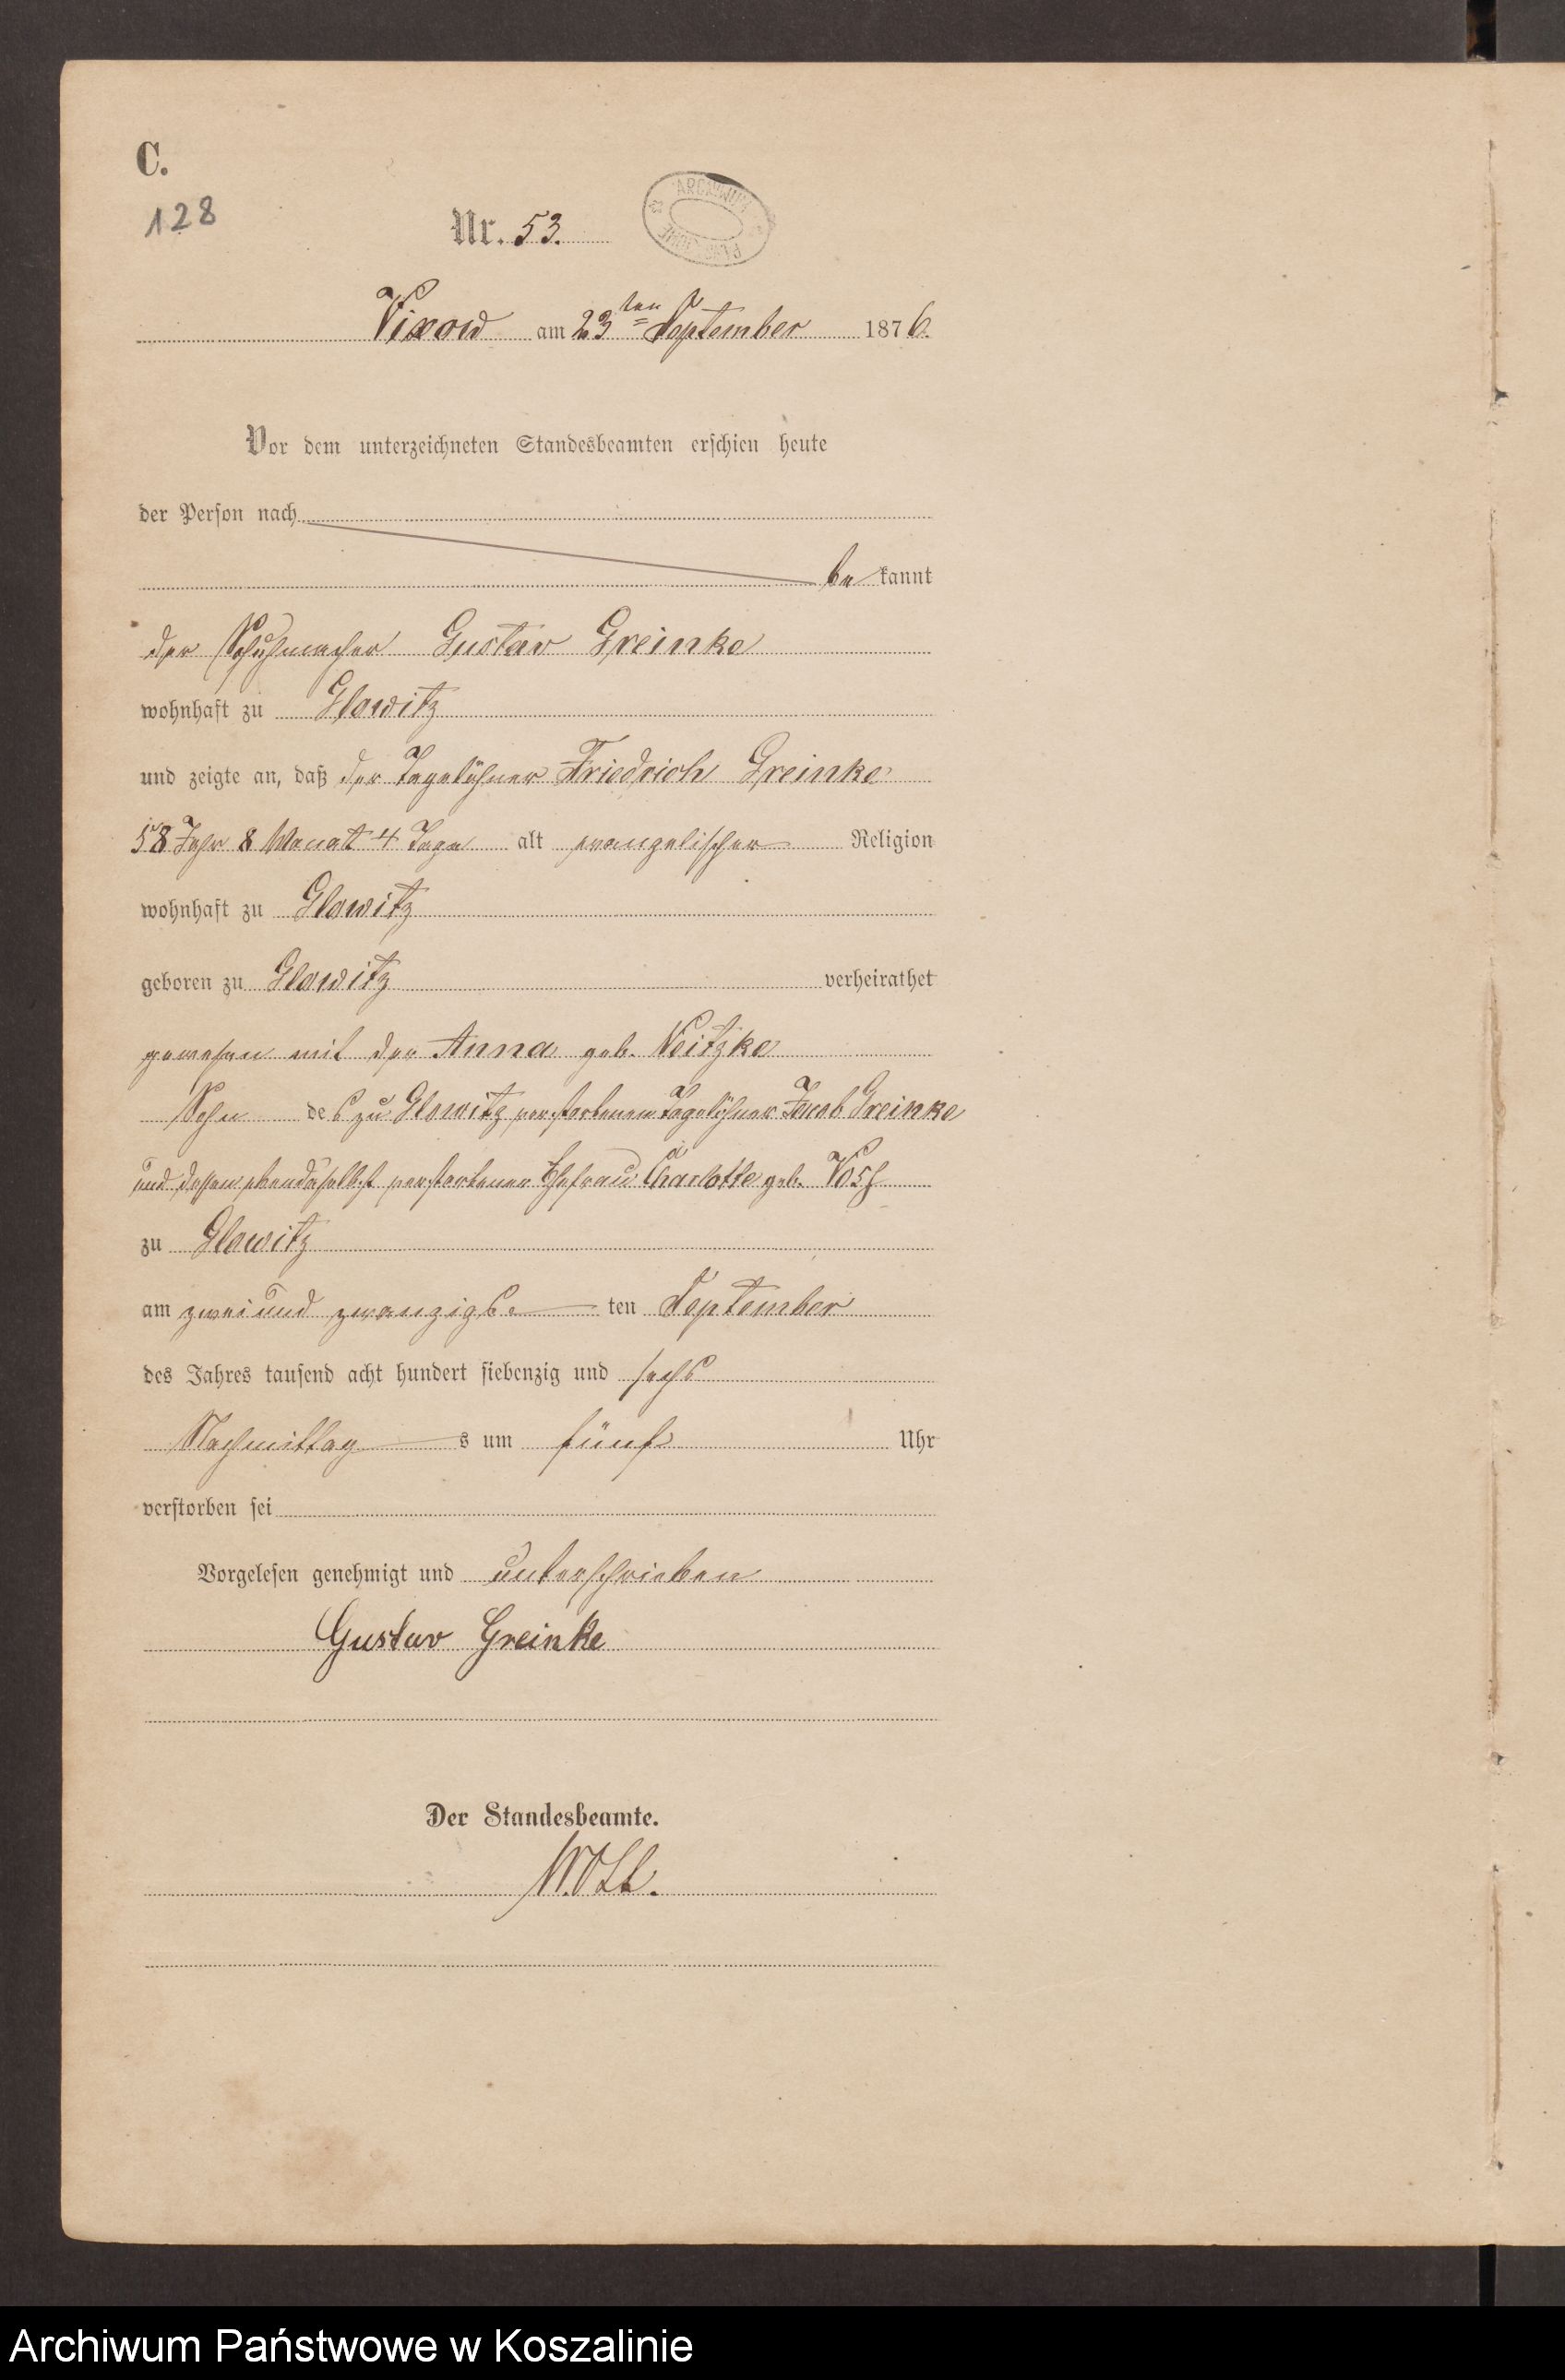 C.
128
Nr. 53.
ARCHIWUM
Vixow am 23ten September 1876.
Vor dem unterzeichneten Standesbeamten erschien heute
der Person nach
be kannt
der Schuhmacher Gustav Greinke
wohnhaft zu Glowitz
und zeigte an, daß der Tagelöhner Friedrich Greinke
58 Jahr 8 Monat 4 Tage alt evangelischer Religion
wohnhaft zu Glowitz
geboren zu Glowitz verheirathet
gewesen mit der Anna geb. Neitzke
Sohn des zu Glowitz verstorbenen Tagelöhner Jacob Greinke
und dessen ebendaselbst verstorbener Ehefrau Charlotte geb. Voss
zu Glowitz
am zwei und zwanzigs ten September
des Jahres tausend acht hundert siebenzig und sechs
Nachmittag s um fünf Uhr
verstorben sei
Vorgelesen genehmigt und unterschrieben
Gustav Greinke
Der Standesbeamte.
Archiwum Państwowe w Koszalinie